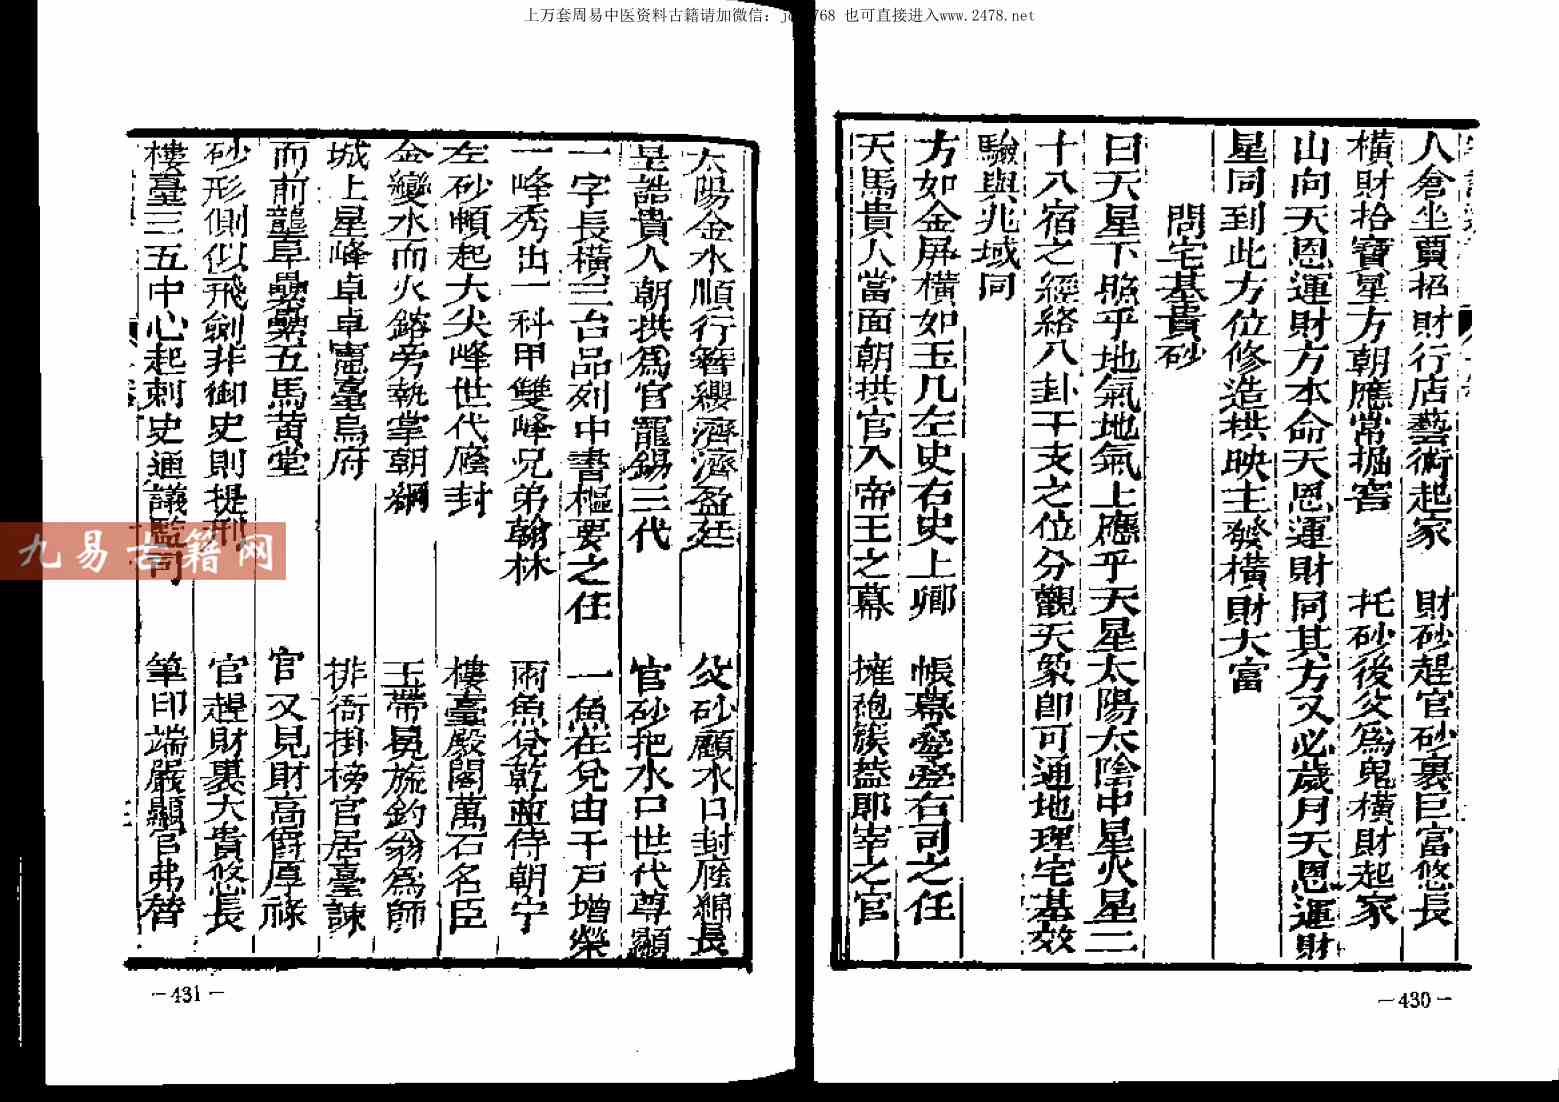 上万套周易中医资料古籍请加微信：
768 也可直接进入www.2478.net
人倉坐賈招財行店藝術起家 財砂趕官砂裏巨富悠長
橫財拾寶星方朝應常掘窖 托砂後父為鬼橫財起家
山向天恩運財方本命天恩運財同其方又必歲月天恩運財
星同到此方位修造拱映主發橫財大富
問宅基貴砂
曰天星下照乎地氣地氣上應乎天星太陽太陰中星火星二
十八宿之經絡八卦干支之位分觀天象即可通地理宅基效
驗與兆域同
方如金屏橫如玉几左史右史上卿 帳幕臺登右司之任
天馬貴人當面朝拱官入帝王之幕 擁袍簇蓋郎宰之官
—430—
太陽金水順行簪纓濟濟盈廷 父砂顧水口封廕綿長
是誥貴人朝拱為官寵錫三代 官砂把水口世代尊顯
一字長橫三台品列中書樞要之任 一魚在兌由千戸增榮
一峰秀出一科甲雙峰兄弟翰林 雨魚兌乾並侍朝宁
左砂頓起大尖峰世代廕封 樓臺殿閣萬石名臣
金變水而火鎔旁執掌朝綱 玉帶晃旒釣翁為師
城上星峰卓卓寵臺烏府 排衙掛榜官居臺諫
而前龍阜纍纍五馬黄堂 官又見財高爵厚祿
砂形側似飛劍非御史則提刑 官趕財裏大貴悠長
樓臺三五中心起刺史通議監司 筆印端嚴顯官弗替
—431—
九易古籍网